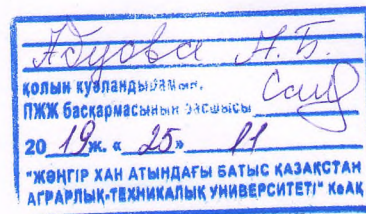 Абуова А.Б.
қолын куәландырамын.
ПЖЖ басқармасының басшысы
20 19 ж. « 25 » 11
"ЖӘҢГІР ХАН АТЫНДАҒЫ БАТЫС ҚАЗАҚСТАН
АГРАРЛЫҚ-ТЕХНИКАЛЫҚ УНИВЕРСИТЕТІ" КеАҚ